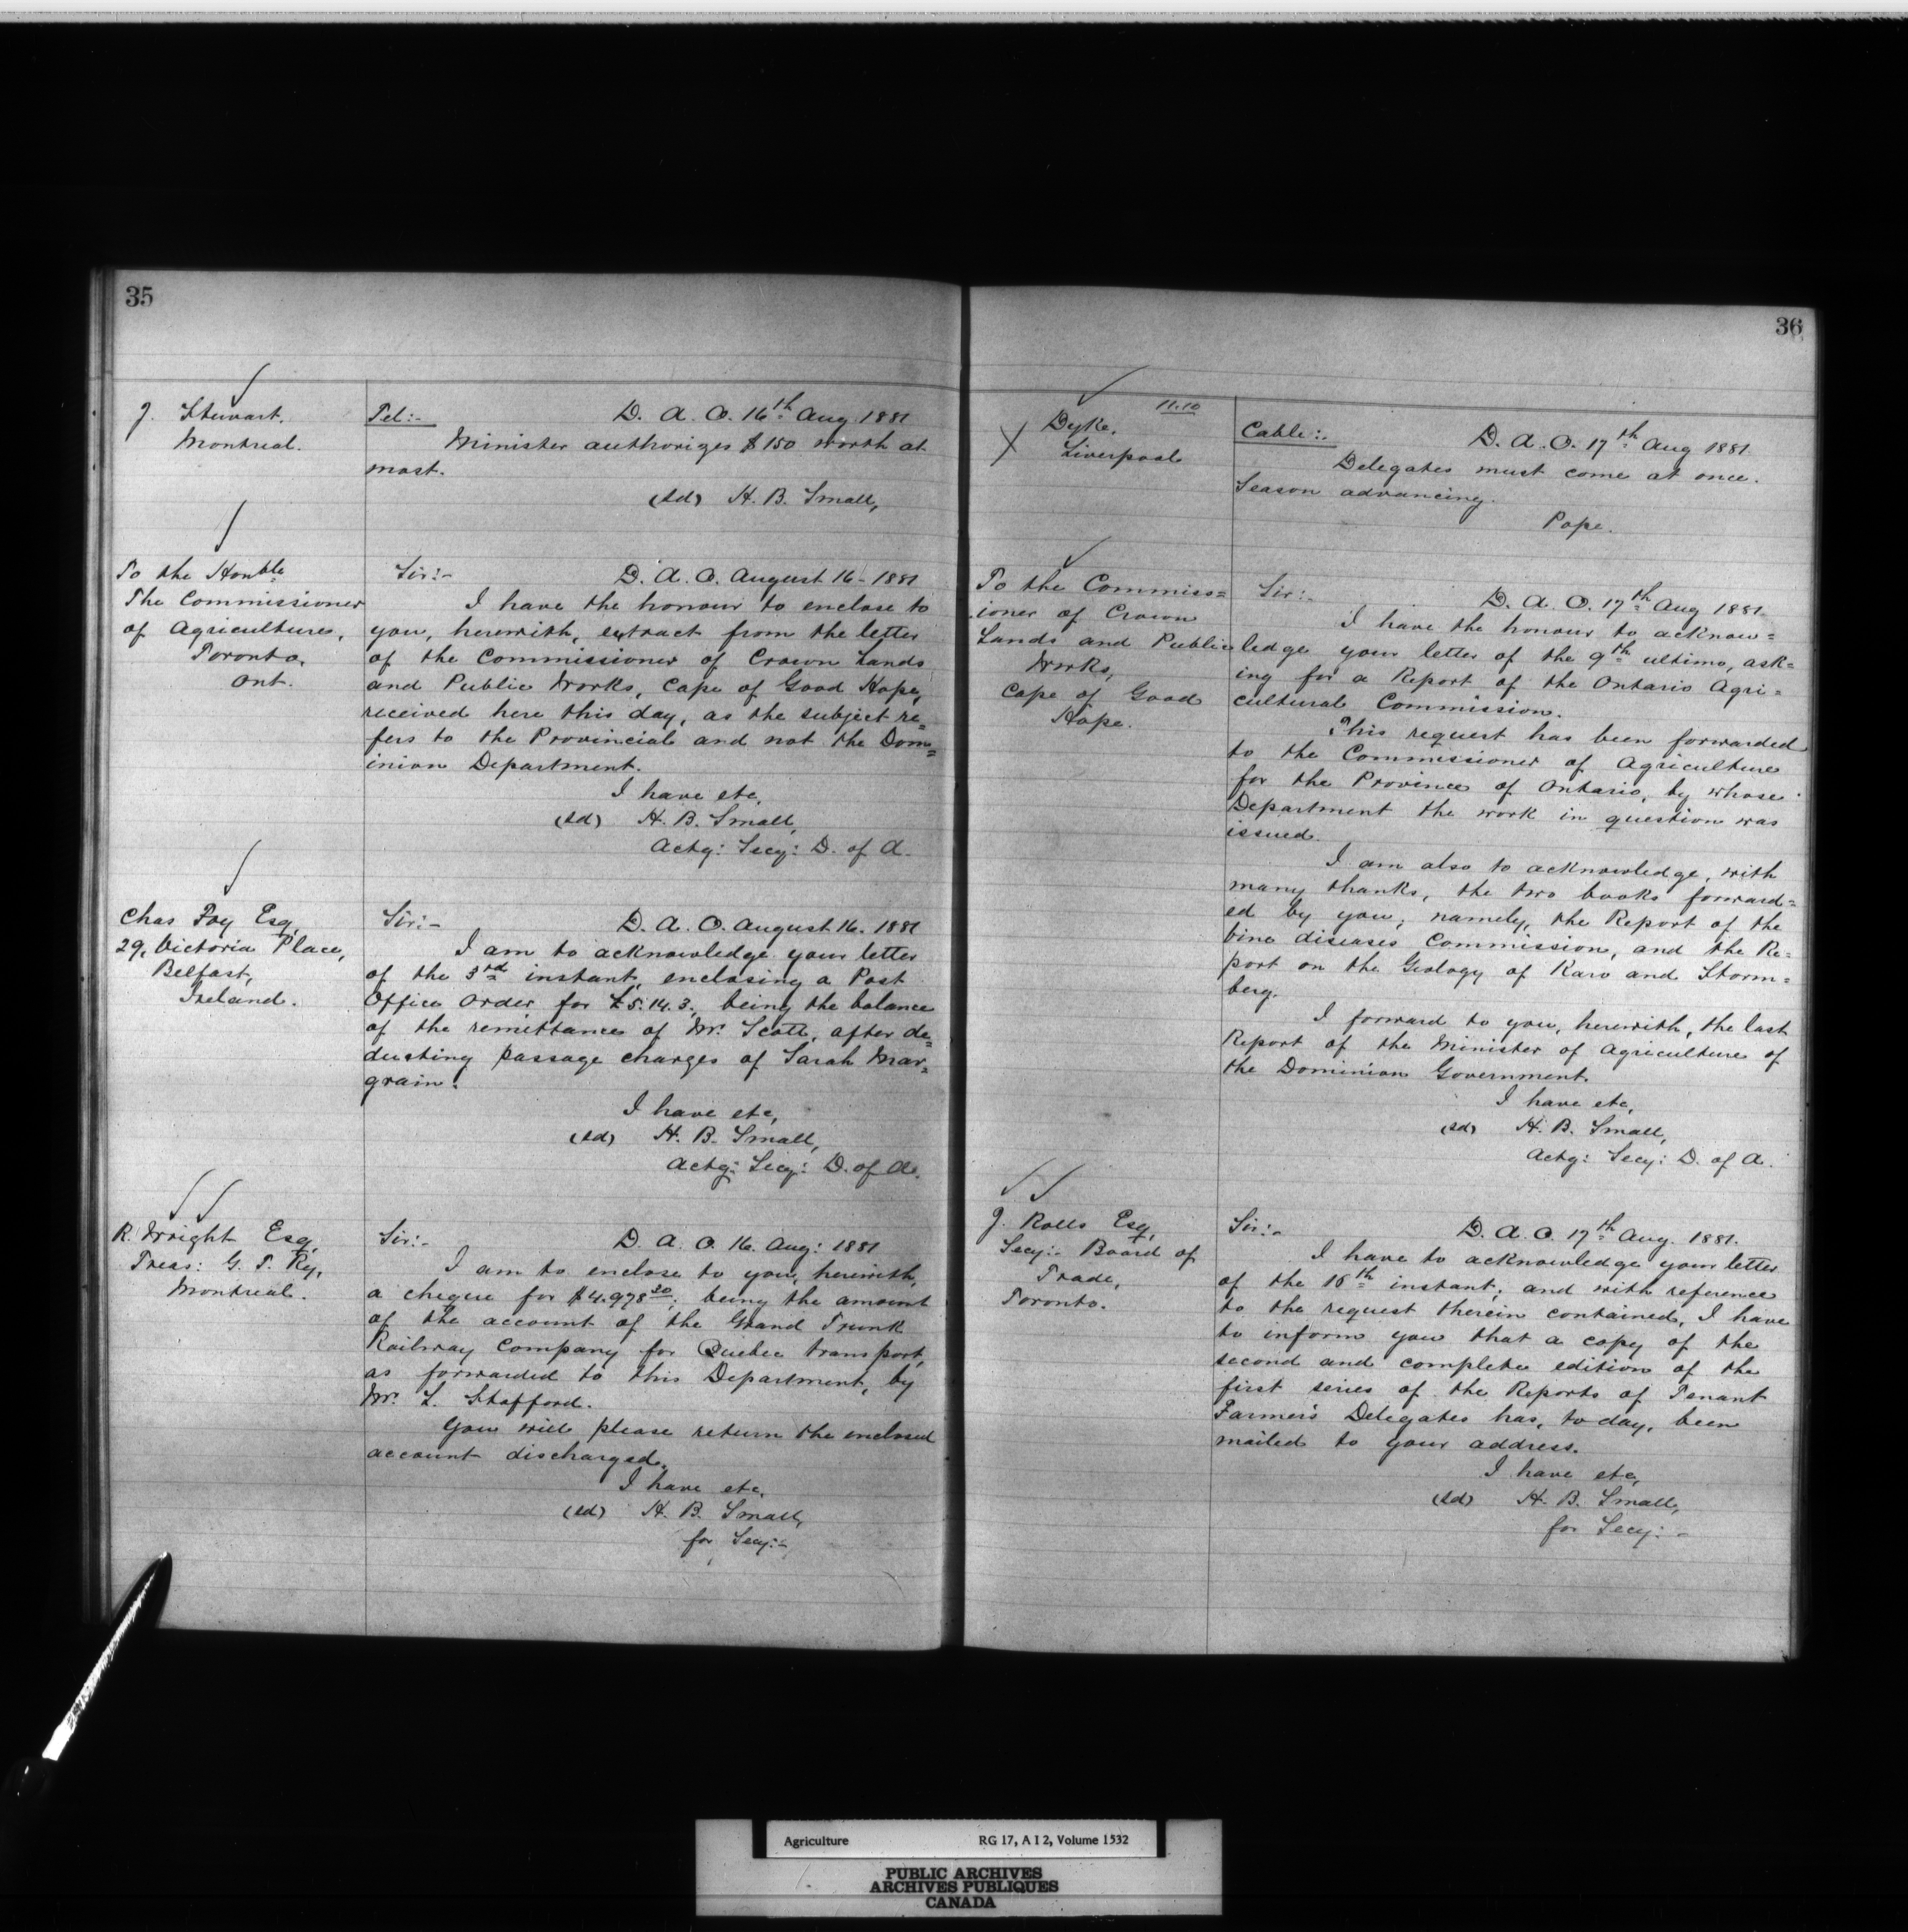 35
J. Stewart.
Montreal.
Tel:- D. A. O. 16th Aug 1881
Minister authorizes $150 worth at
most.
(sd) H. B. Small,
To the Honble
The Commissioner
of Agriculture,
Toronto,
Ont.
Sir:- D. A. O. August 16 - 1881
I have the honour to enclose to
you, herewith, extract from the letter
of the Commissioner of Crown Lands
and Public Works, Cape of Good Hope,
received here this day, as the subject re=
fers to the Provincial and not the Dom=
inion Department.
I have etc,
(sd) H. B. Small,
Actg: Secy: D. of A.
Chas Foy Esq,
29, Victoria Place,
Belfast,
Ireland.
Sir:- D. A. O. August 16. 1881
I am to acknowledge your letter
of the 3rd instant, enclosing a Post
Office Order for £5.14.3., being the balance
of the remittance of Mr. Scott, after de=
ducting passage charges of Sarah Mar=
grain.
I have etc,
(sd) H. B. Small,
Actg: Secy: D. of A.
R. Wright Esq,
Treas: G. T. Ry,
Montreal.
Sir:- D. A. O. 16. Aug: 1881
I am to enclose to you, herewith,
a cheque for $4.978 20, being the amount
of the account of the Grand Trunk
Railway Company for Quebec transport,
as forwarded to this Department, by
Mr. L. Stafford.
You will please return the enclosed
account discharged.
I have etc,
(sd) H. B. Small,
for Secy:-
36
11.10
Dyke,
Liverpool
Cable:- D. A. O. 17th Aug 1881
Delegates must come at once.
Season advancing.
Pope.
To the Commiss=
ioner of Crown
Lands and Public
Works,
Cape of Good
Hope.
Sir:- D. A. O. 17th Aug 1881
I have the honour to acknow=
ledge your letter of the 9th ultimo, ask=
ing for a Report of the Ontario Agri=
cultural Commission.
This request has been forwarded
to the Commissioner of Agriculture
for the Province of Ontario, by whose
Department the work in question was
issued.
I am also to acknowledge, with
many thanks, the two books forward=
ed by you; namely, the Report of the
Vine diseases Commission, and the Re=
port on the Geology of Karo and Storm=
berg.
I forward to you, herewith, the last
Report of the Minister of Agriculture of
the Dominion Government.
I have etc,
(sd) H. B. Small,
Actg: Secy: D. of A.
J. Rolls Esq,
Secy:- Board of
Trade,
Toronto.
Sir:- D. A. O. 17th Aug. 1881.
I have to acknowledge your letter
of the 15th instant; and with reference
to the request therein contained, I have
to inform you that a copy of the
second and complete edition of the
first series of the Reports of Tenant
Farmer's Delegates has, to day, been
mailed to your address.
I have etc,
(sd) H. B. Small,
for Secy:-
Agriculture RG 17, A I 2, Volume 1532
PUBLIC ARCHIVES
ARCHIVES PUBLIQUES
CANADA